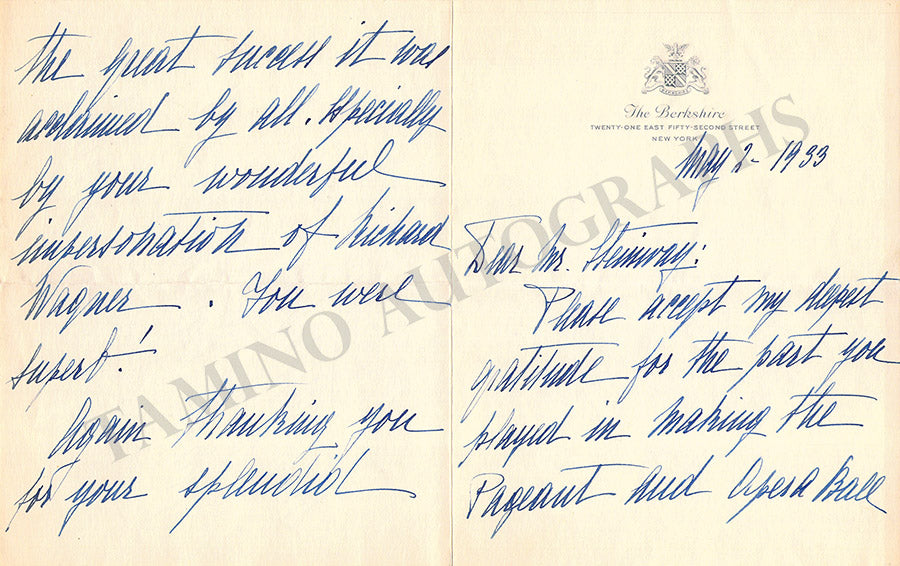 The Berkshire
TWENTY-ONE EAST FIFTY-SECOND STREET
NEW YORK
May 2 - 1933
Dear Mr. Steinway:
Please accept my deepest
gratitude for the part you
played in making the
Pageant and Opera Ball
the great success it was
acclaimed by all. specially
by your wonderful
impersonation of Richard
Wagner. You were
superb!
Again thanking you
for your splendid
TAMINO AUTOGRAPHS